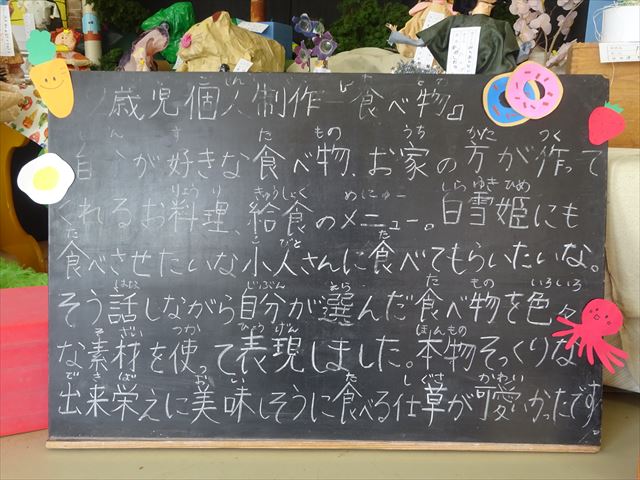 歳児個人制作『食べ物』
自分が好きな食べ物、お家の方が作って
くれるお料理、給食のメニュー。白雪姫にも
食べさせたいな小人さんに食べてもらいたいな。
そう話しながら自分が選んだ食べ物を色々
な素材を使って表現しました。本物そっくりな
出来栄えに美味しそうに食べる仕草が可愛いかったです